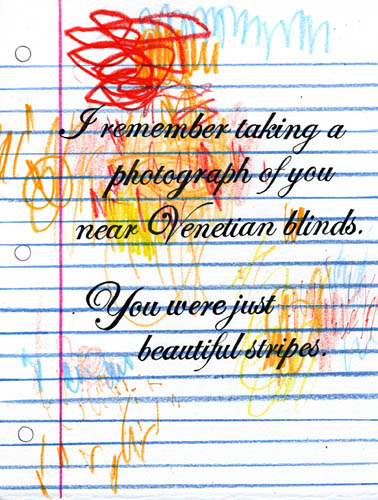 I remember taking a
photograph of you
near Venetian blinds.
You were just
beautiful stripes.